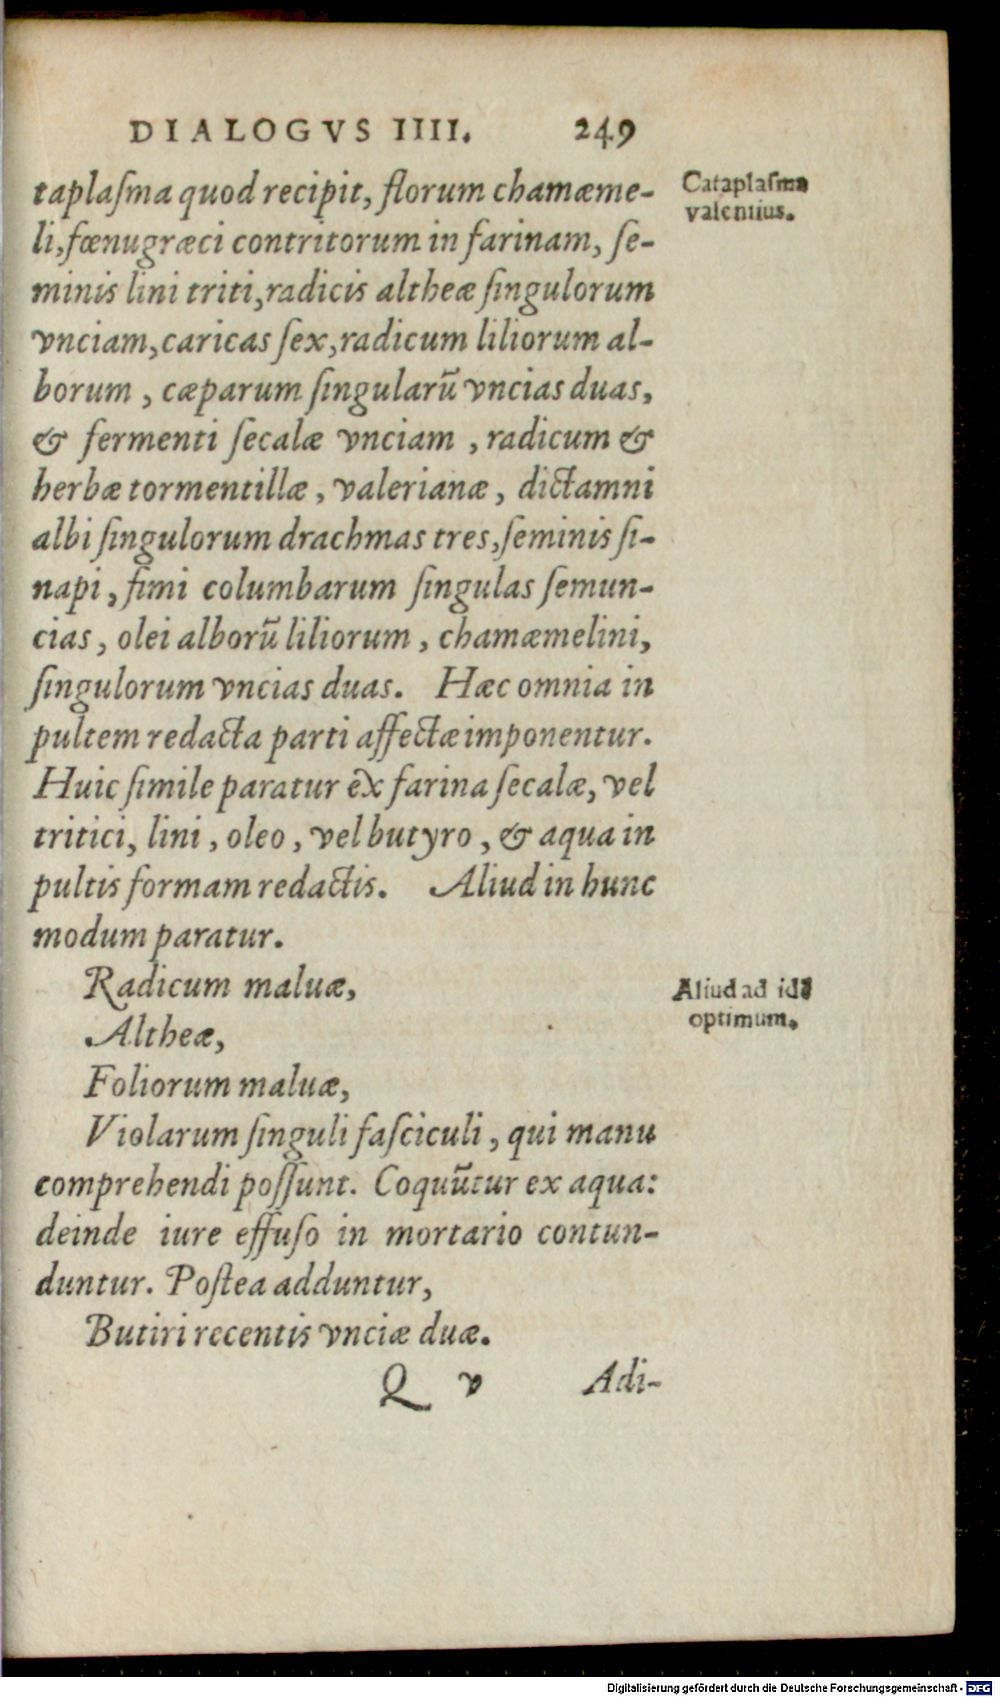 DIALOGVS IIII. 249
taplaſma quod recipit, florum chamæme-
li, fœnugræci contritorum in farinam, ſe-
minis lini triti, radicis altheæ ſingulorum
vnciam, caricas ſex, radicum liliorum al-
borum, cæparum ſingularũ vncias duas,
& fermenti ſecalæ vnciam, radicum &
herbæ tormentillæ, valerianæ, dictamni
albi ſingulorum drachmas tres, ſeminis ſi-
napi, fimi columbarum ſingulas ſemun-
cias, olei alborũ liliorum, chamæmelini,
ſingulorum vncias duas. Hæc omnia in
pultem redacta parti affectæ imponentur.
Huic ſimile paratur ex farina ſecalæ, vel
tritici, lini, oleo, vel butyro, & aqua in
pultis formam redactis. Aliud in hunc
modum paratur.
Radicum maluæ,
Altheæ,
Foliorum maluæ,
Violarum ſinguli faſciculi, qui manu
comprehendi poſſunt. Coquũtur ex aqua:
deinde iure effuſo in mortario contun-
duntur. Poſtea adduntur,
Butiri recentis vnciæ duæ.
Q v Adi-
Cataplaſma
valentius.
Aliud ad id
optimum.
Digitalisierung gefördert durch die Deutsche Forschungsgemeinschaft - DFG